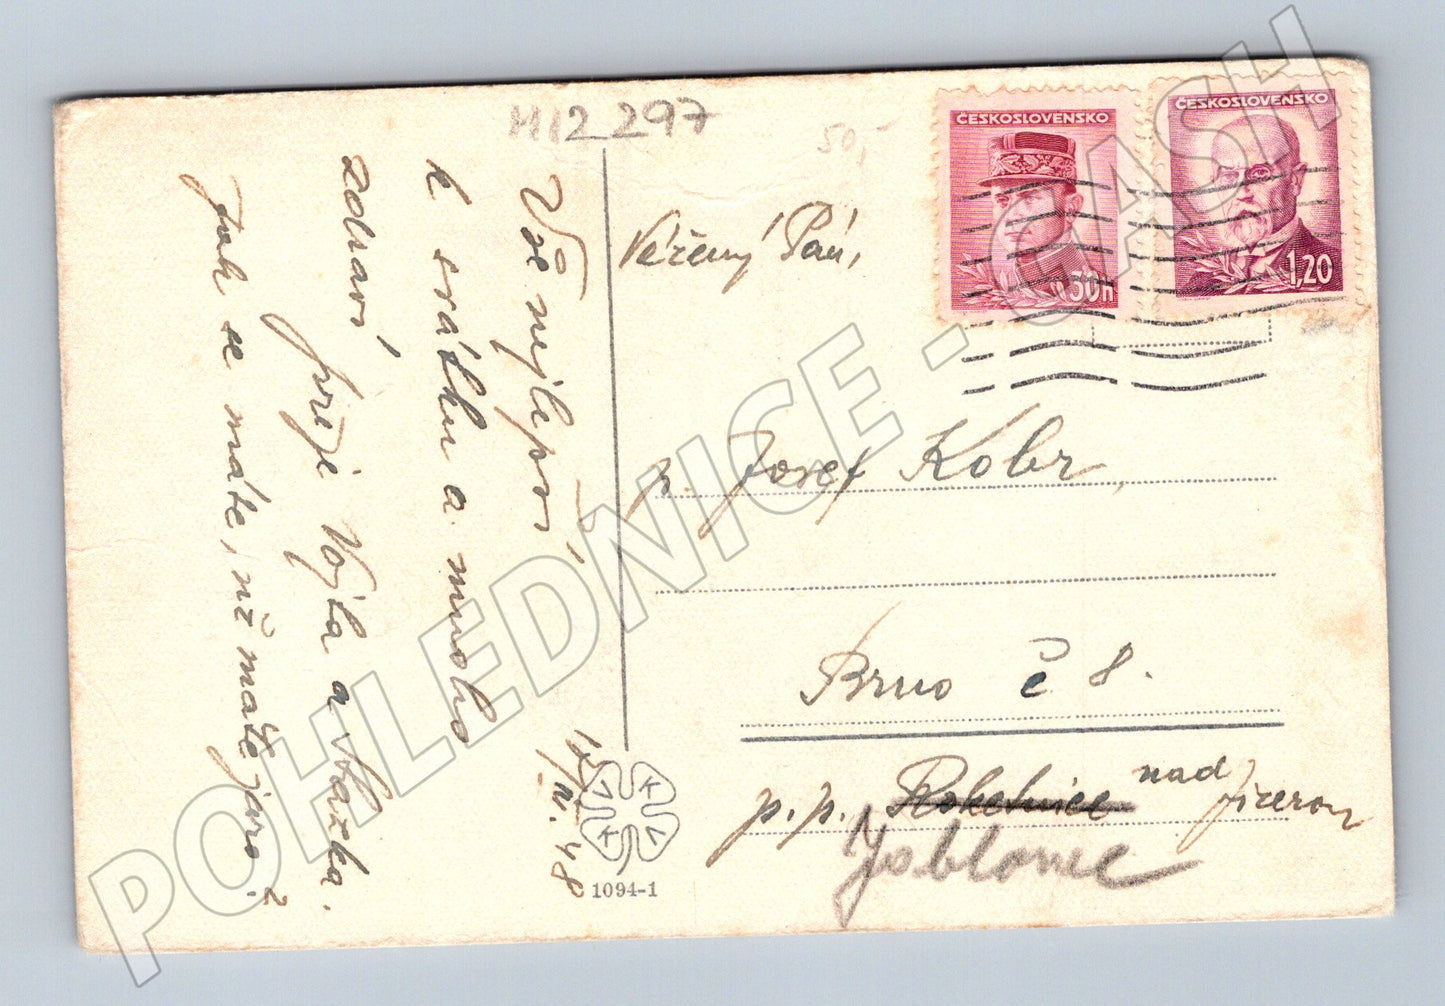 M12 297
50,-
ČESKOSLOVENSKO
50h
ČESKOSLOVENSKO
1,20
Vážený Pan,
p. Josef Kobr,
Brno č 8.
p.p. Roketnice nad Jizerou
Jablonec
18/III. 48
Vše nejlepší
k svátku a mnoho
zdraví
přeje Vojta a Vlazka.
Jak se máte, už máte jaro?
V K
K V
1094-1
POHLEDNICE - CASH